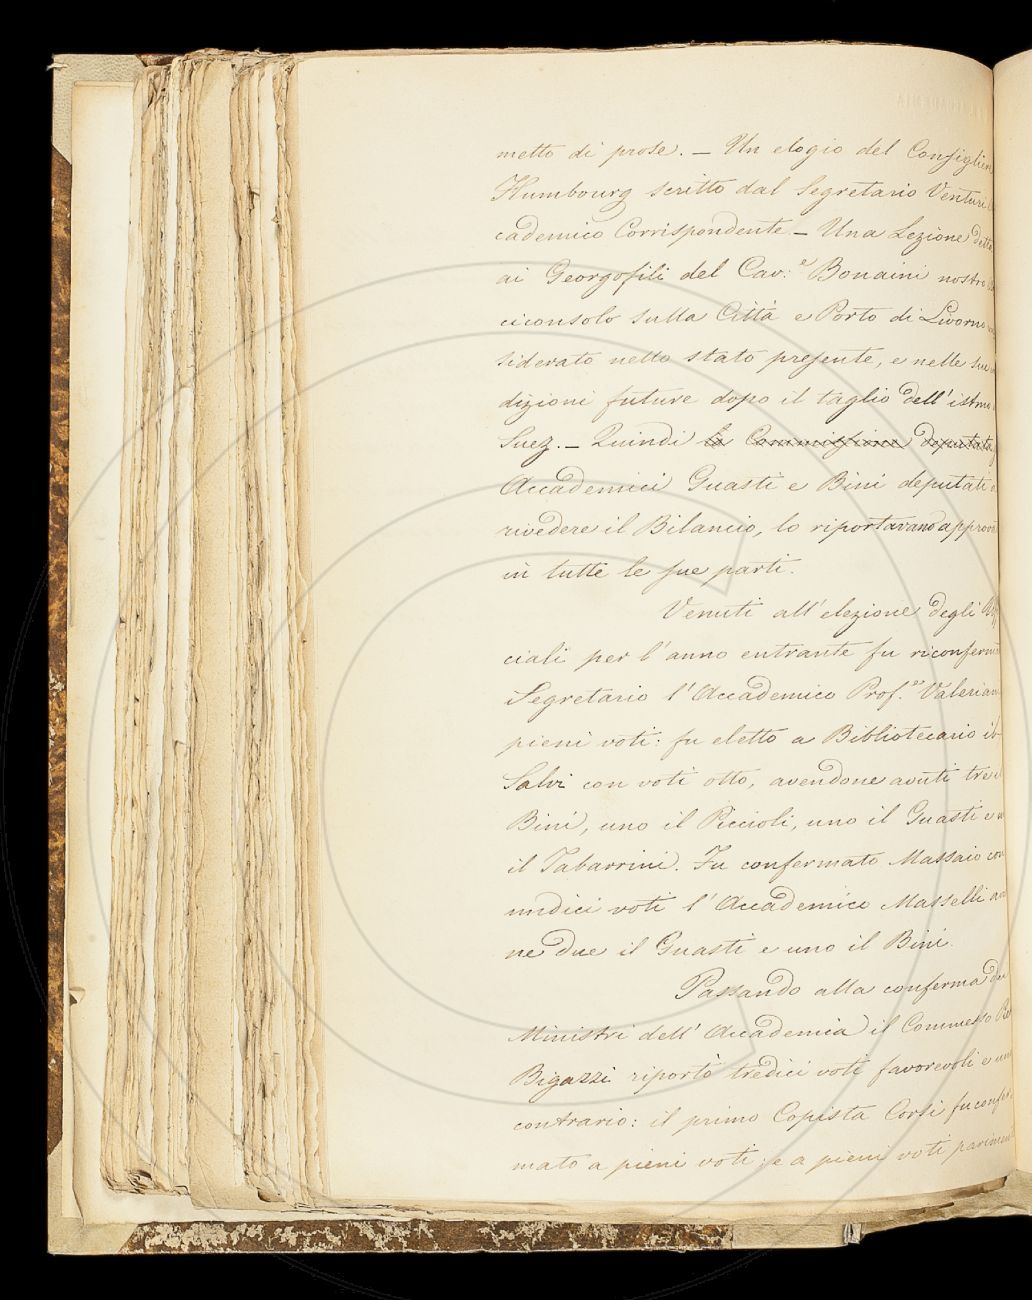 metto di prose. — Un elogio del Consiglier
Humbourg scritto dal Segretario Venturi
cademico Corrispondente. — Una Lezione detta
ai Georgofili del Cav.e Bonaini nostro
ciconsolo sulla Città e Porto di Livorno
siderato nello stato presente, e nelle sue
dizioni future dopo il taglio dell'istmo
Suez. — Quindi la Commissione deputata
Accademici Guasti e Bini deputati
rivedere il Bilancio, lo riportavano approv
in tutte le sue parti.
Venuti all'elezione degli Uff
ciali per l'anno entrante fu riconferm
Segretario l'Accademico Prof.re Valeriani
pieni voti: fu eletto a Bibliotecario il
Salvi con voti otto, avendone avuti tre
Bini, uno il Piccioli, uno il Guasti e
il Tabarrini. Fu confermato Massaio con
undici voti l'Accademico Masselli
ne due il Guasti e uno il Bini.
Passando alla conferma dei
Ministri dell'Accademia il Commesso
Bigazzi riportò tredici voti favorevoli e un
contrario: il primo Copista Corsi fu confer
mato a pieni voti; e a pieni voti pariment